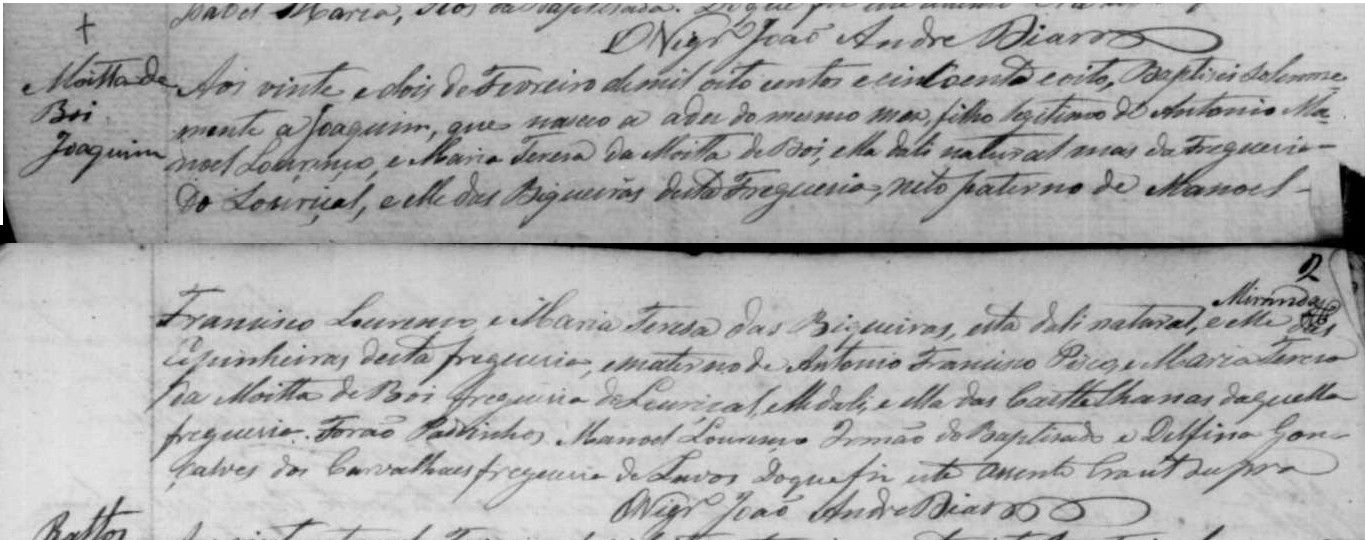 Isabel Maria, Avos da Baptisada. Do que fiz este
O Vigr.º João Andre Dias
Moitta de
Boi
Joaquim
Aos vinte e dois de Fevreiro de mil oito centos e cincoenta e oito, Baptizei solemne=
mente a Joaquim, que nasceo a a dez do mesmo mez, filho legitimo de Antonio Ma=
noel Lourenço, e Maria Teresa da Moitta de Boi, ella dali natural mas da Freguesia
do Louriçal, e elle das Bigueiras desta Freguesia, neto paterno de Manoel
2
Miranda
Francisco Lourenço, e Maria Teresa das Bigueiras, esta dali natural, e elle das
Espinheiras desta freguesia, e materno de Antonio Francisco e Maria Teresa
da Moitta de Boi freguesia do Louriçal, elle dali, e ella das Casttelhanas daquella
freguesia. Forão Padrinhos Manoel Lourenço Irmão do Baptisado e Delfina Gon=
çalves dos Carvalhaes freguesia de Lavos Do que fiz este assento Era ut supra
O Vigr.º João Andre Dias
Rattos